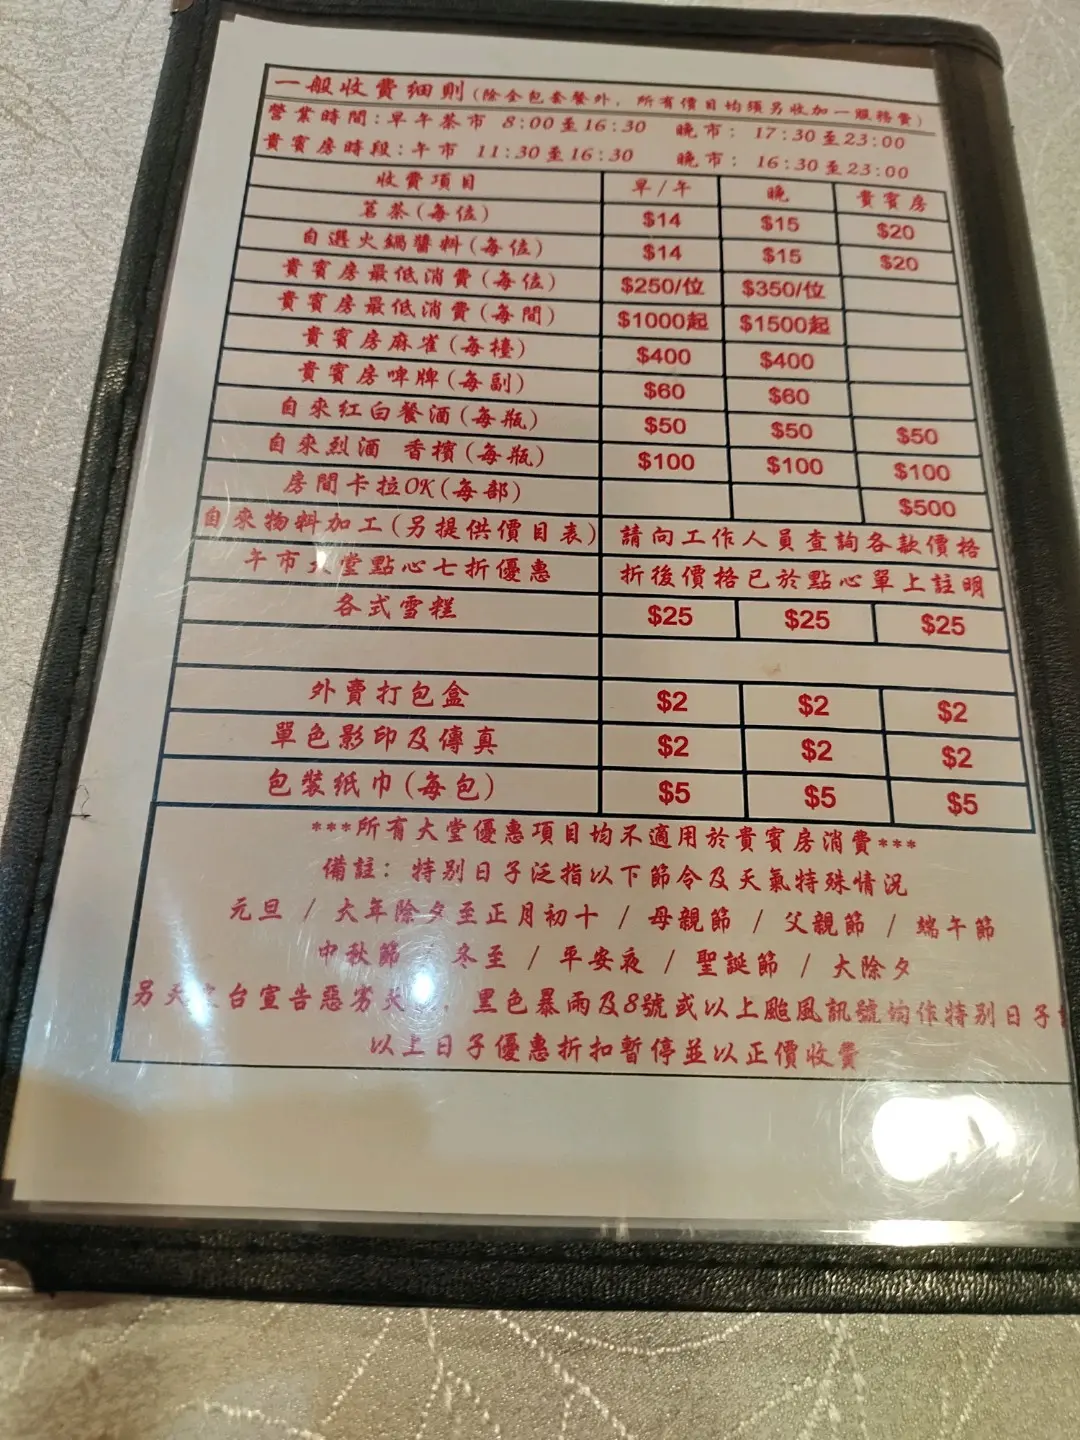 一般收費細則(除全包套餐外，所有價目均須另收加一服務費)
營業時間:早午茶市 8:00至16:30 晚市: 17:30至23:00
貴賓房時段:午市 11:30至16:30 晚市: 16:30至23:00
收費項目 早/午 晚 貴賓房
茗茶(每位) $14 $15 $20
自選火鍋醬料(每位) $14 $15 $20
貴賓房最低消費(每位) $250/位 $350/位
貴賓房最低消費(每間) $1000起 $1500起
貴賓房麻雀(每檯) $400 $400
貴賓房啤牌(每副) $60 $60
自來紅白餐酒(每瓶) $50 $50 $50
自來烈酒 香檳(每瓶) $100 $100 $100
房間卡拉OK(每部) $500
自來物料加工(另提供價目表) 請向工作人員查詢各款價格
午市大堂點心七折優惠 折後價格已於點心單上註明
各式雪糕 $25 $25 $25
外賣打包盒 $2 $2 $2
單色影印及傳真 $2 $2 $2
包裝纸巾(每包) $5 $5 $5
***所有大堂優惠項目均不適用於貴賓房消費***
備註: 特別日子泛指以下節令及天氣特殊情況
元旦 / 大年除夕至正月初十 / 母親節 / 父親節 / 端午節
中秋節 冬至 / 平安夜 / 聖誕節 / 大除夕
另天文台宣告惡劣天 , 黑色暴雨及8號或以上颱風訊號均作特別日子
以上日子優惠折扣暫停並以正價收費